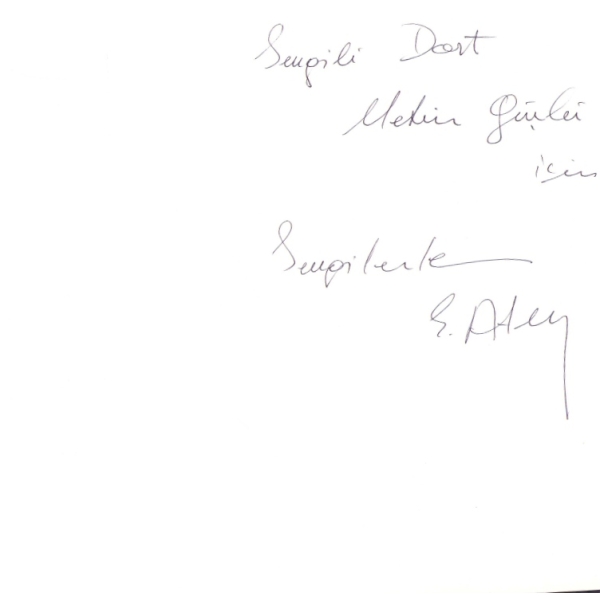 Sevgili Dost
Metin Güçlü
için
Sevgilerle
E. Atey